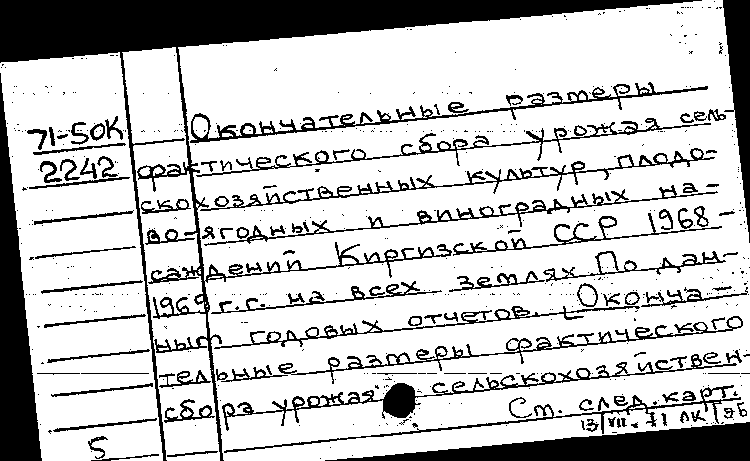 Окончательные размеры
71-50К
2242
фактического сбора урожая сель-
скохозяйственных культур, плодо-
во-ягодных и виноградных на-
саждений Киргизской ССР 1968-
1969 г.г. на всех землях По дан-
ным годовых отчетов. Оконча-
тельные размеры фактического
сбора урожая сельскохозяйствен-
См. след. карт.
5
13/VII-71